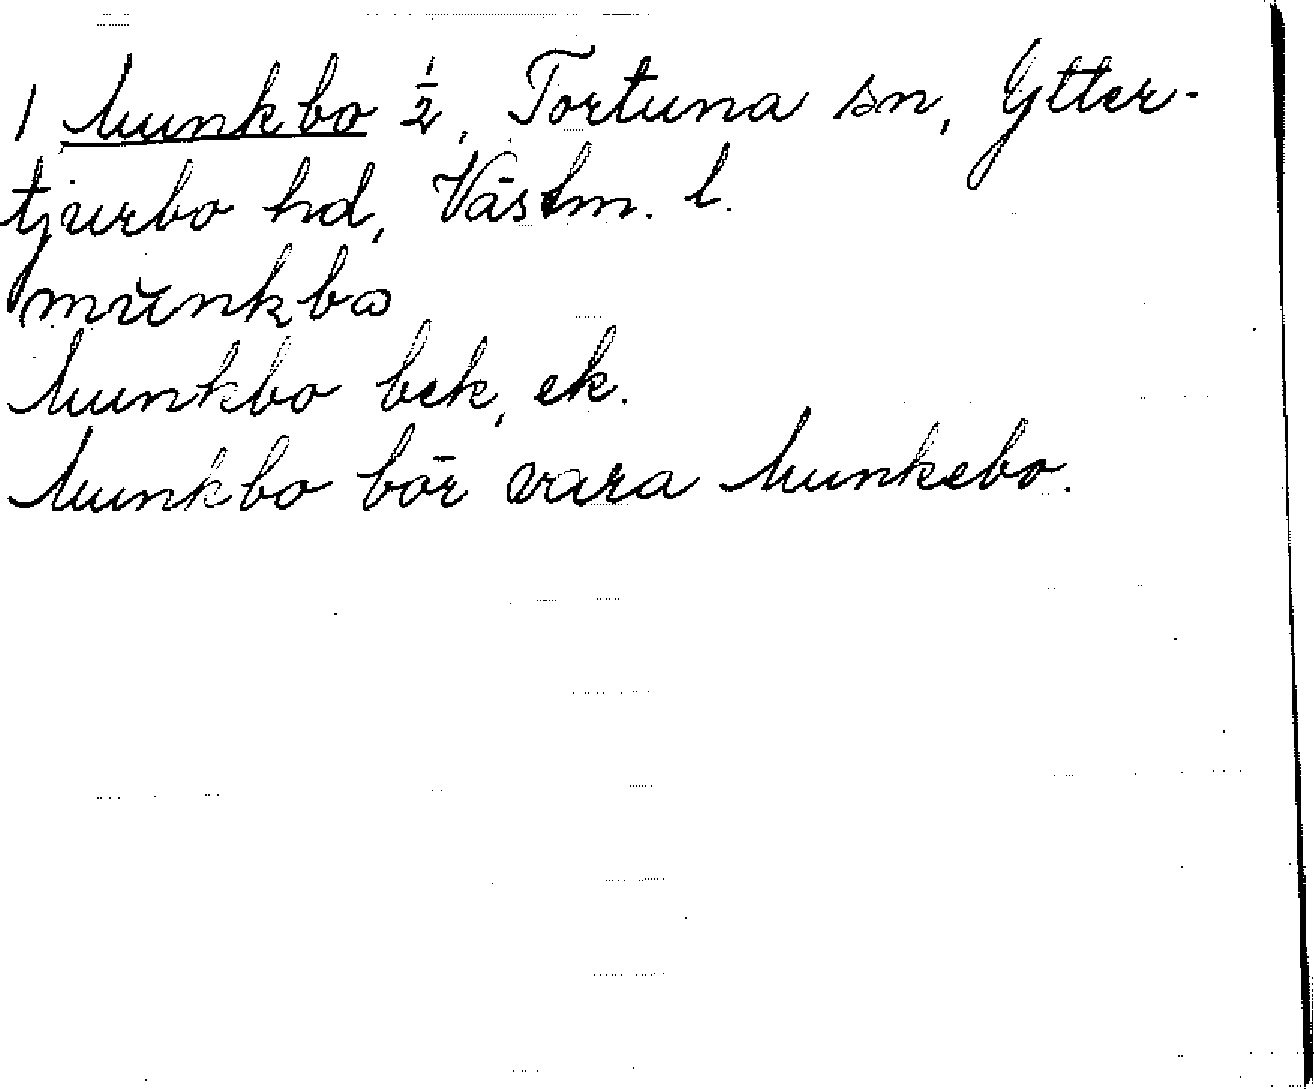 1 Munkbo ½, Tortuna sn, Ytter-
tjurbo hd, Västm. l.
mŭnkbω
Munkbo bek, ek.
Munkbo bör vara Munkebo.